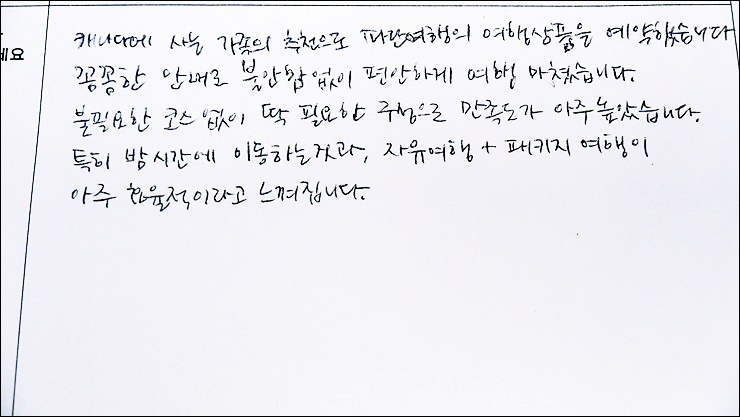 세요
캐나다에 사는 가족의 추천으로 파란여행의 여행상품을 예약했습니다
꼼꼼한 안내로 불안함 없이 편안하게 여행 마쳤습니다.
불필요한 코스 없이 딱 필요한 구성으로 만족도가 아주 높았습니다.
특히 밤시간에 이동하는것과, 자유여행 + 패키지 여행이
아주 효율적이라고 느껴집니다.